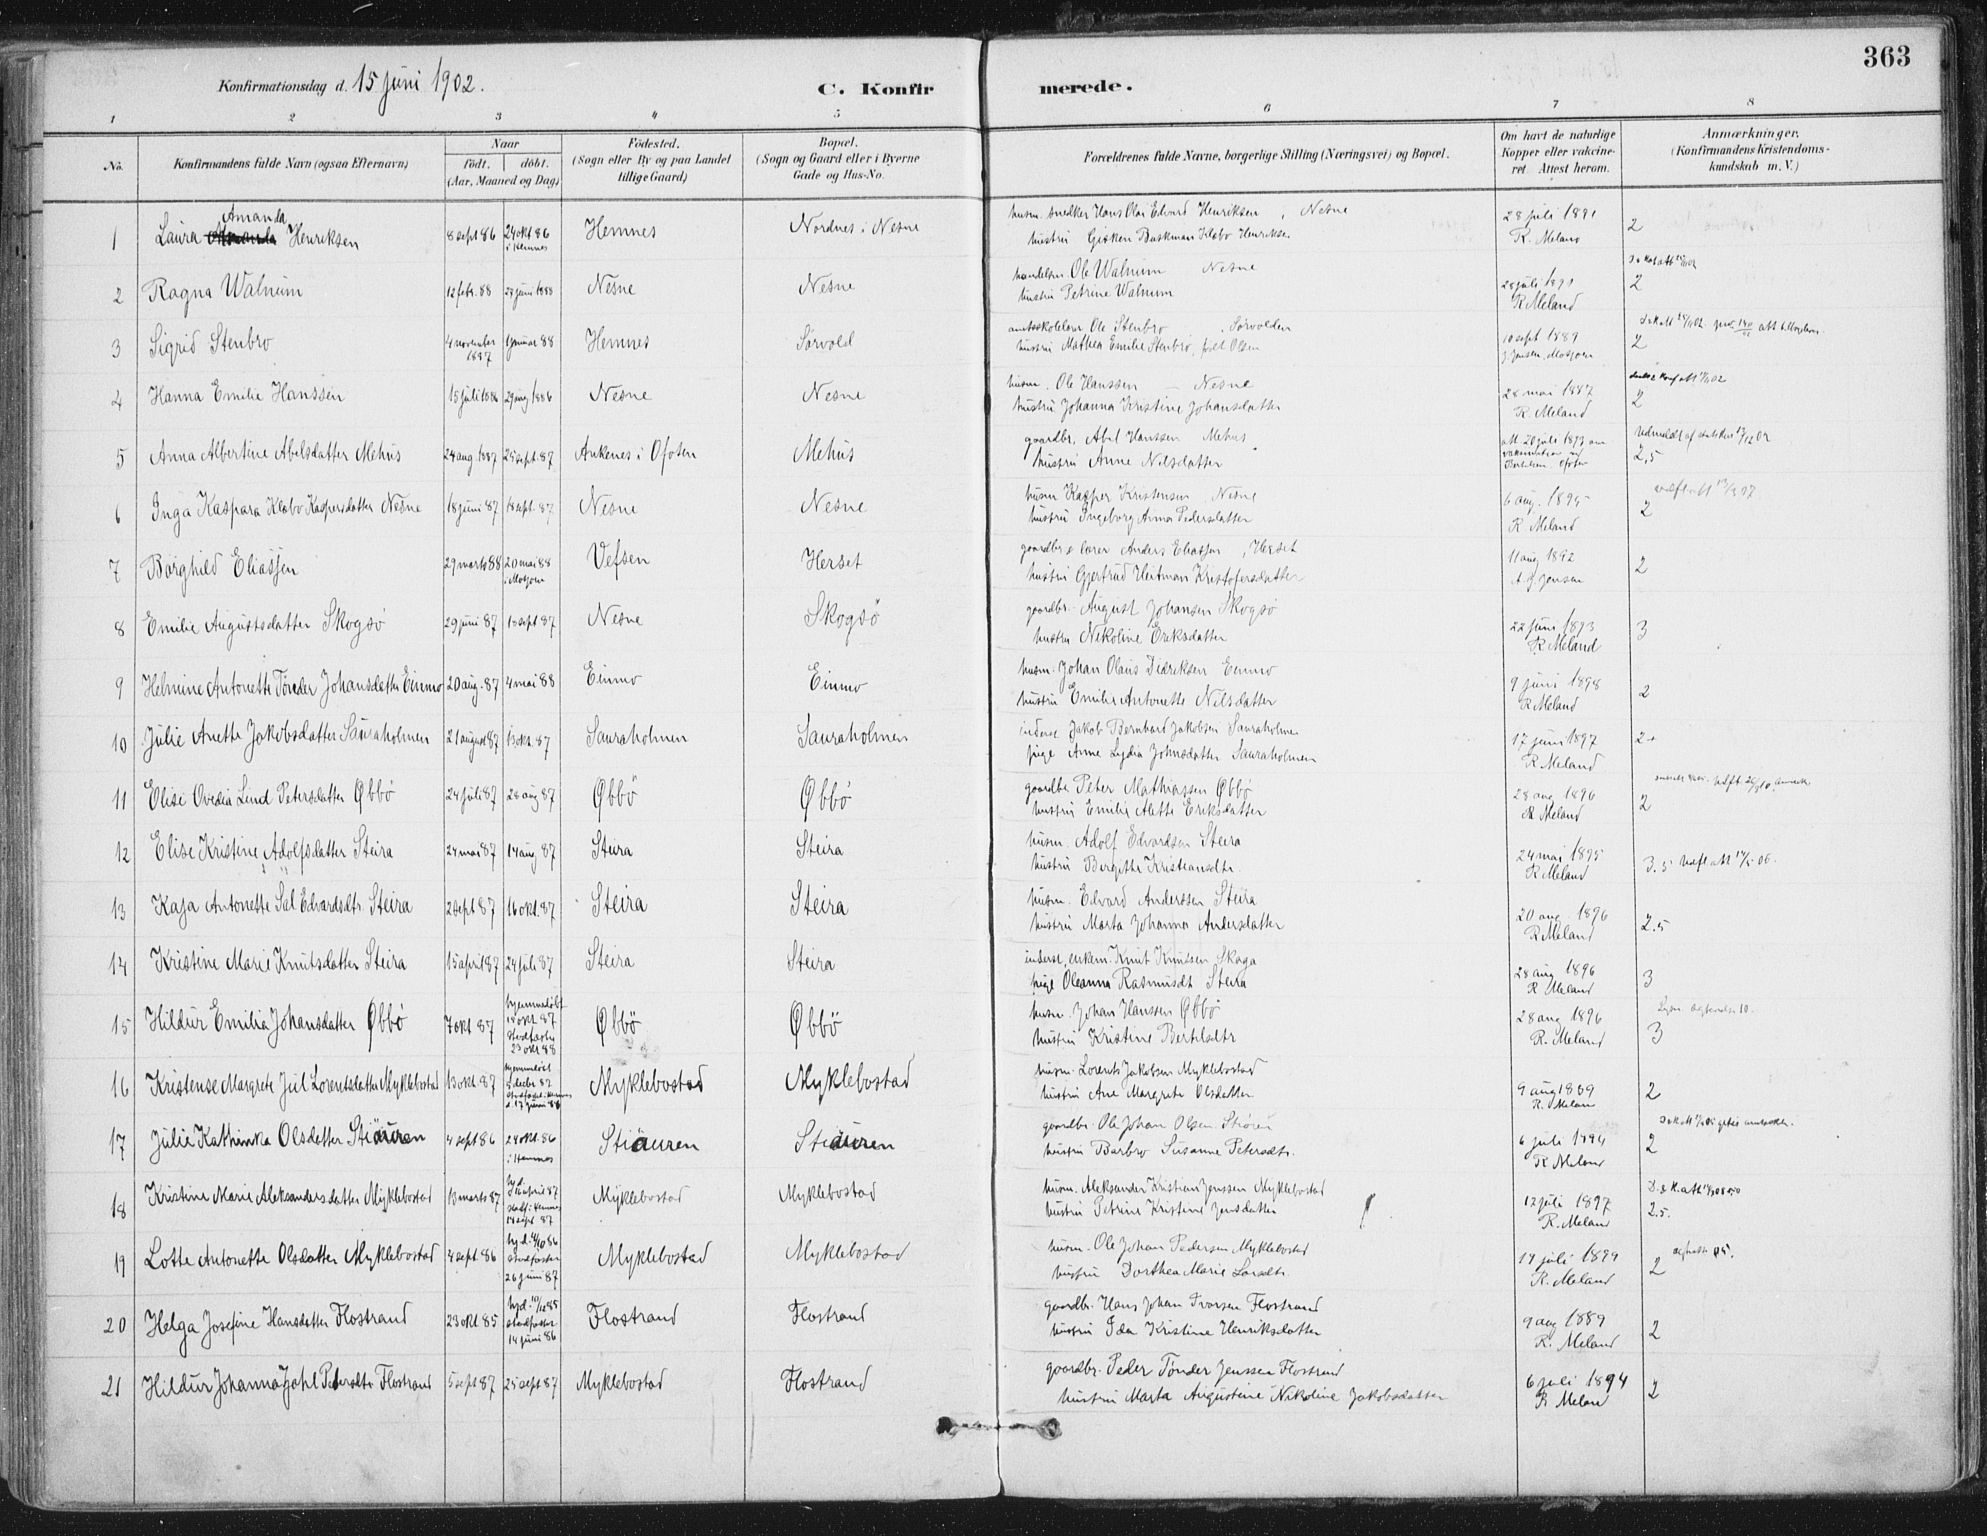 363
Konfirmationsdag d. 15 juni 1902.
C. Konfirmerede.
1 2 3 4 5 6 7 8
No. Konfirmandens fulde Navn (ogsaa Efternavn) Naar födt. döbt. (Aar, Maaned og Dag) Födested. (Sogn eller By og paa Landet tillige Gaard) Bopæl. (Sogn og Gaard eller i Byerne Gade og Hus-No. Forældrenes fulde Navne, borgerlige Stilling (Næringsvei) og Bopæl. Om havt de naturlige Kopper eller vakcineret. Attest herom. Anmærkninger. (Konfirmandens Kristendomskundskab m. V.)
1 Laura Amanda Henriksen 8 sept 86 24 okt 86 i Hemnes Hemnes Nordnes i Nesne husm. snedker Hans Olai Edvard Henriksen, Nesne 28 juli 1891
hustru Henriksen R. Meland 2
2 Ragna Walnum 12 febr. 88 24 juni 1888 Nesne Nesne handelsm. Ole Walnum Nesne 28 juli 1891
hustru Petrine Walnum R. Meland 2
3 Sigrid Stenbro 4 november 1887 1 januar 88 Hemnes Sørvold amtsskolelærer Ole Stenbro, Sørvolden 10 sept 1889
hustru Mathea Emilie Stenbro, født Olsen J. Jensen, Mosjøen 2
4 Hanna Emilie Hanssen 15 juli 1886 29 aug 1886 Nesne Nesne husm. Ole Hanssen - Nesne 28 mai 1887
hustru Johanna Kristine Johansdatter R. Meland 2
5 Anna Albertine Abelsdatter Mehus 24 aug 1887 25 sept. 87 Ankenes i Ofoten Mehus gaardbr. Abel Hanssen Mehus att 20 juli 1893 om
hustru Anne Nilsdatter 2,5
6 Inga Kaspara Klæbo Kaspersdatter Nesne 18 juni 87 18 sept. 87 Nesne Nesne husm Kasper Kristensen Nesne 6 aug. 1895
hustru Ingeborg Anna Pedersdatter R. Meland 2
7 Borghild Eliassen 29 marts 88 20 mai 88 i Mosjøen Vefsen Herset gaardbr & lærer Anders Eliassen, Herset 11 aug 1892
hustru Gjertrud Heitman Kristofersdatter A. J. Jensen 2
8 Emilie Augustsdatter Skogsö 29 juni 87 18 sept 87 Nesne Skogsö gaardbr. August Johansen Skogsö 22 juni 1893
hustru Nikoline Eriksdatter R. Meland 3
9 Helmine Antonette Tönder Johansdatter Einmo 20 aug. 87 4 mai 88 Einmo Einmo husm. Johan Olaus Didriksen Einmo 9 juni 1898
hustru Emilie Antonette Nilsdatter R. Meland 2
10 Julie Anette Jakobsdatter Sauraholmen 21 august 87 13 okt. 87 Sauraholmen Sauraholmen inderst Jakob Bernhard Jakobsen Sauraholmen 17 juni 1897
pige Anne Lydia Johnsdatter Sauraholmen R. Meland 2+
11 Elise Ovedia Lind Petersdatter Øbbø 24 juli 87 28 aug 87 Øbbö Øbbö gaardbr Peter Mathiassen Øbbö 28 aug 1896
hustru Emilie Alette Eriksdatter R. Meland 2
12 Elise Kristine Adolfsdatter Steira 24 mai 87 14 aug 87 Steira Steira husm. Adolf Edvardsen Steira 24 mai 1895
hustru Bergitte Kristiansdtr. R. Meland 3.5
13 Kaja Antonette Sæl Edvardsdtr. Steira 2 sept 87 16 okt. 87 Steira Steira husm. Edvard Anderssen Steira 20 aug. 1896
hustru Marta Johanna Andersdatter R. Meland 2.5
14 Kristine Marie Knutsdatter Steira 15 april 87 24 juli 87 Steira Steira inderst, enkem. Knut Knutsen Skaga 28 aug 1896
pige Oleanna Rasmusdt Steira R. Meland 3
15 Hildur Emilia Johansdatter Øbbö 7 okt 87 hjemmedöbt 18 okt 87 stadfæstet 23 okt 88 Øbbö Øbbö husm. Johan Hanssen Øbbö 28 aug 1896
hustru Kristine Bertelsdtr R. Meland 3
16 Kristense Margrete Jul Lorentsdatter Myklebostad 13 okt. 87 Myklebostad Myklebostad husm. Lorents Jakobsen Myklebostad 9 aug 1889
hustru Ane Margrete Olsdatter R. Meland 2
17 Julie Kathinka Olsdatter Stiauren 4 sept 86 24 okt. 86 i Hemnes Stiauren Stiauren gaardbr. Ole Johan Olsen 6 juli 1894
hustru Barbro Susanne Petersdtr. R. Meland 2
18 Kristine Marie Aleksandersdatter Myklebostad 13 marts 87 Myklebostad Myklebostad husm. Aleksander Kristian Jenssen Myklebostad 12 juli 1897
hustru Petrine Kristine Jensdatter R. Meland 2.5.
19 Lotte Antonette Olsdatter Myklebostad 4 sept. 86 stadfæstet 26 juni 87 Myklebostad Myklebostad husm. Ole Johan Pedersen Myklebostad 19 juli 1899
hustru Dorthea Marie Larsdtr. R. Meland 2
20 Helga Josefine Hansdatter Flostrand 23 okt 85 hjd. 10/12 85 stadfæstet 14 juni 86 Flostrand Flostrand gaardbr. Hans Johan Iversen Flostrand 9 aug 1889
hustru Ida Kristine Henriksdatter R. Meland 2
21 Hildur Johanna Petersdtr. Flostrand 5 sept 87 25 sept 87 Myklebostad Flostrand gaardbr. Peder Tönder Jenssen Flostrand 6 juli 1894
hustru Marta Augustine Nikoline Jakobsdatter R. Meland 2